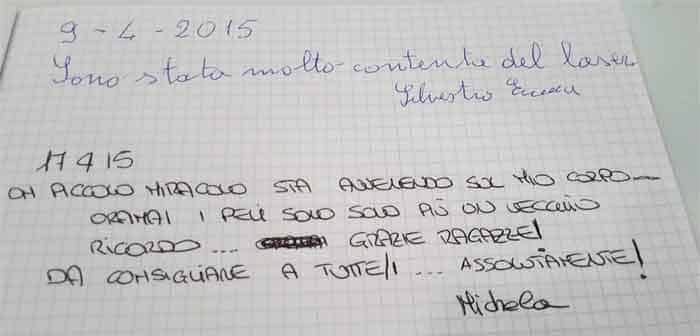 9-4-2015
Sono stata molto contenta del laser
Silvestro
17 4 15
UN PICCOLO MIRACOLO STA AVVENENDO SUL MIO CORPO...
ORAMAI I PELI SOLO SOLO PIÙ UN VECCHIO
RICORDO... GRAZIE RAGAZZE!
DA CONSIGLIARE A TUTTE/I ... ASSOLUTAMENTE!
Michela